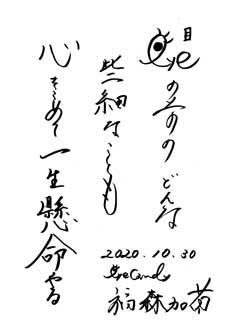 目
eye
の前のどんな
些細なことも
心をこめて一生懸命やる
2020.10.30
EyeCandy
福森加苗